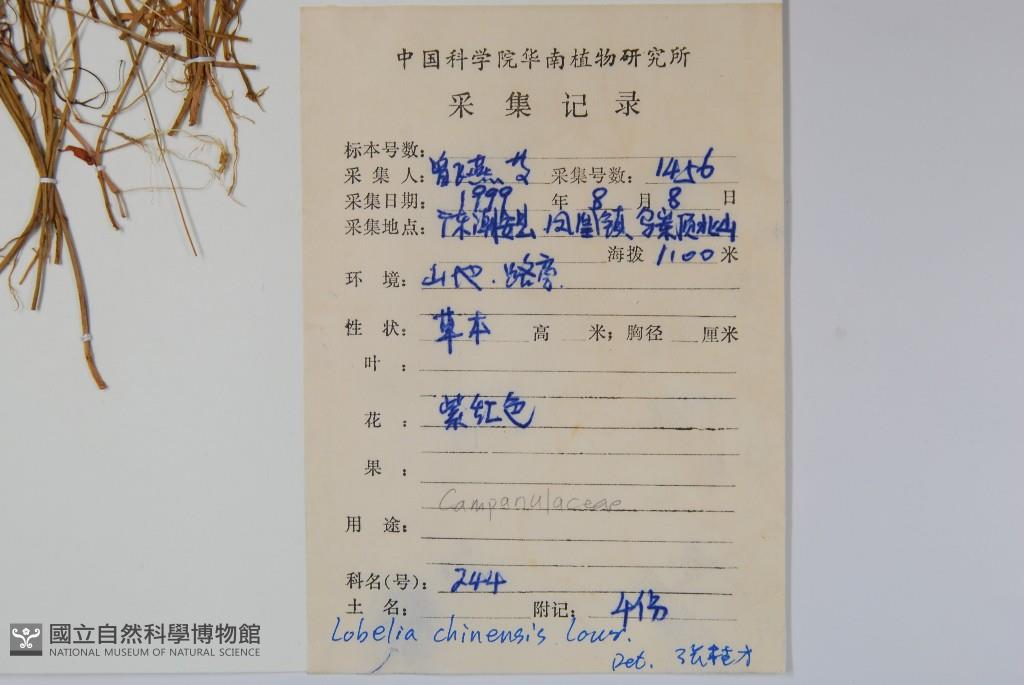 中国科学院华南植物研究所
采集记录
标本号数:
采集人: 曾飞燕 采集号数: 1456
采集日期: 1999 年 8 月 8 日
采集地点: 广东潮安县 凤凰镇 乌岽顶北山
海拨 1100 米
环境: 山地.路旁.
性状: 草本 高 米; 胸径 厘米
叶:
花: 紫红色
果:
Campanulaceae
用途:
科名(号): 244
土名: 附记: 4份
Lobelia chinensis Lour.
Det. 张桂才
國立自然科學博物館
NATIONAL MUSEUM OF NATURAL SCIENCE